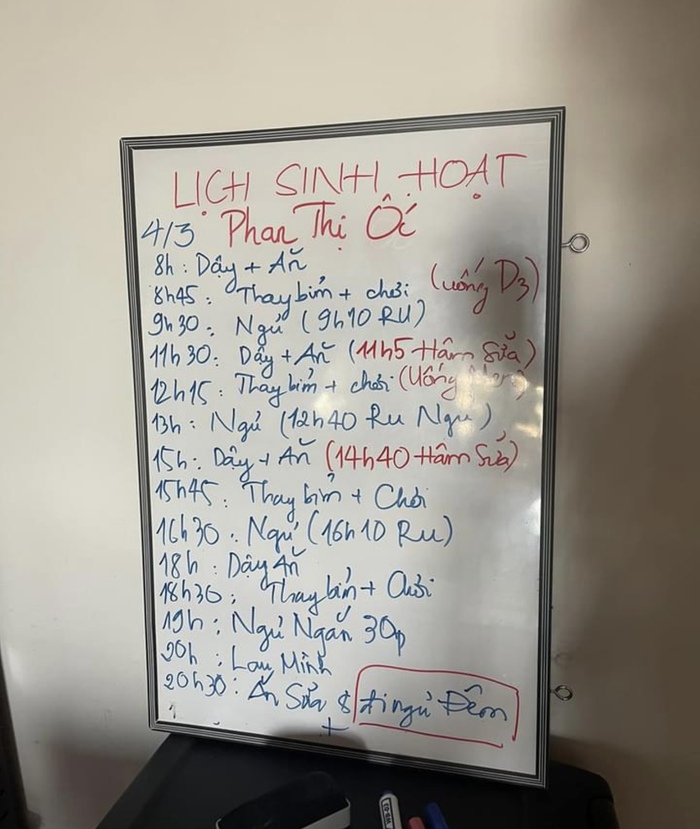 LỊCH SINH HOẠT
4/3 Phan Thị Ốc
8h : Dậy + Ăn
8h45 : Thay bỉm + chơi (uống D3)
9h30 : Ngủ (9h10 RU)
11h30 : Dậy + Ăn (11h5 Hâm Sữa)
12h15 : Thay bỉm + chơi (Uống
13h : Ngủ (12h40 Ru Ngủ)
15h : Dậy + Ăn (14h40 Hâm Sữa)
15h45 : Thay bỉm + Chơi
16h30 : Ngủ (16h10 RU)
18h : Dậy Ăn
18h30 : Thay bỉm + Chơi
19h : Ngủ Ngắn 30p
20h : Lau Mình
20h30 : Ăn Sữa & đi ngủ Đêm
+